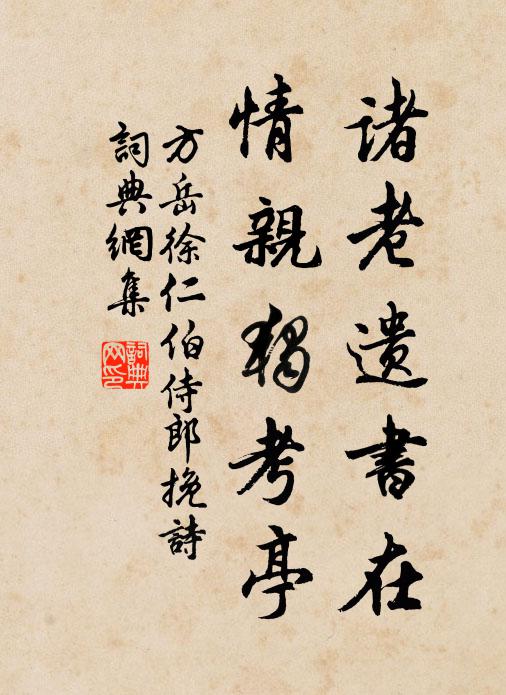 諸老遺書在
情親獨考亭
方岳徐仁伯侍郎挽詩
詞典網集
詞典網印